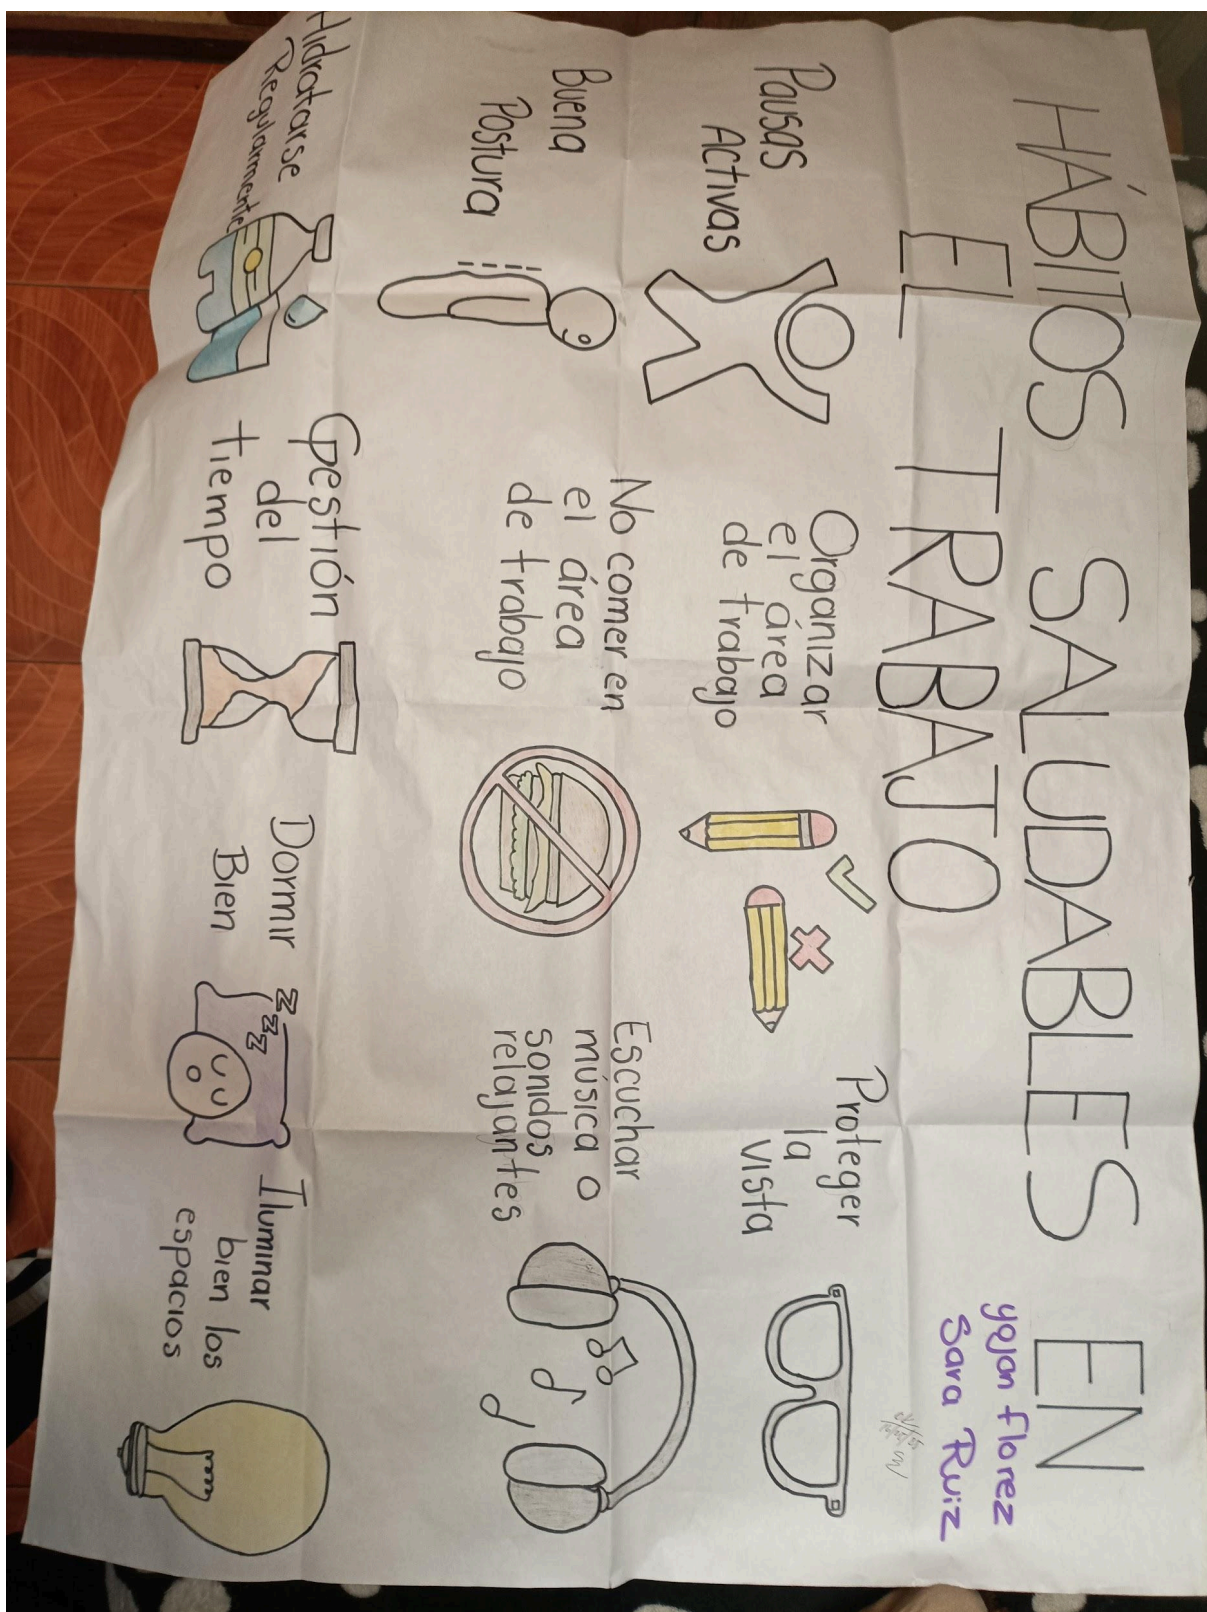 HÁBITOS SALUDABLES EN
EL TRABAJO
yojan florez
Sara Ruiz
Pausas
Activas
Organizar
el área
de trabajo
Proteger
la
vista
Buena
Postura
No comer en
el área
de trabajo
Escuchar
música o
sonidos
relajantes
Hidratarse
Regularmente
Gestión
del
tiempo
Dormir
Bien
zzz
Iluminar
bien los
espacios